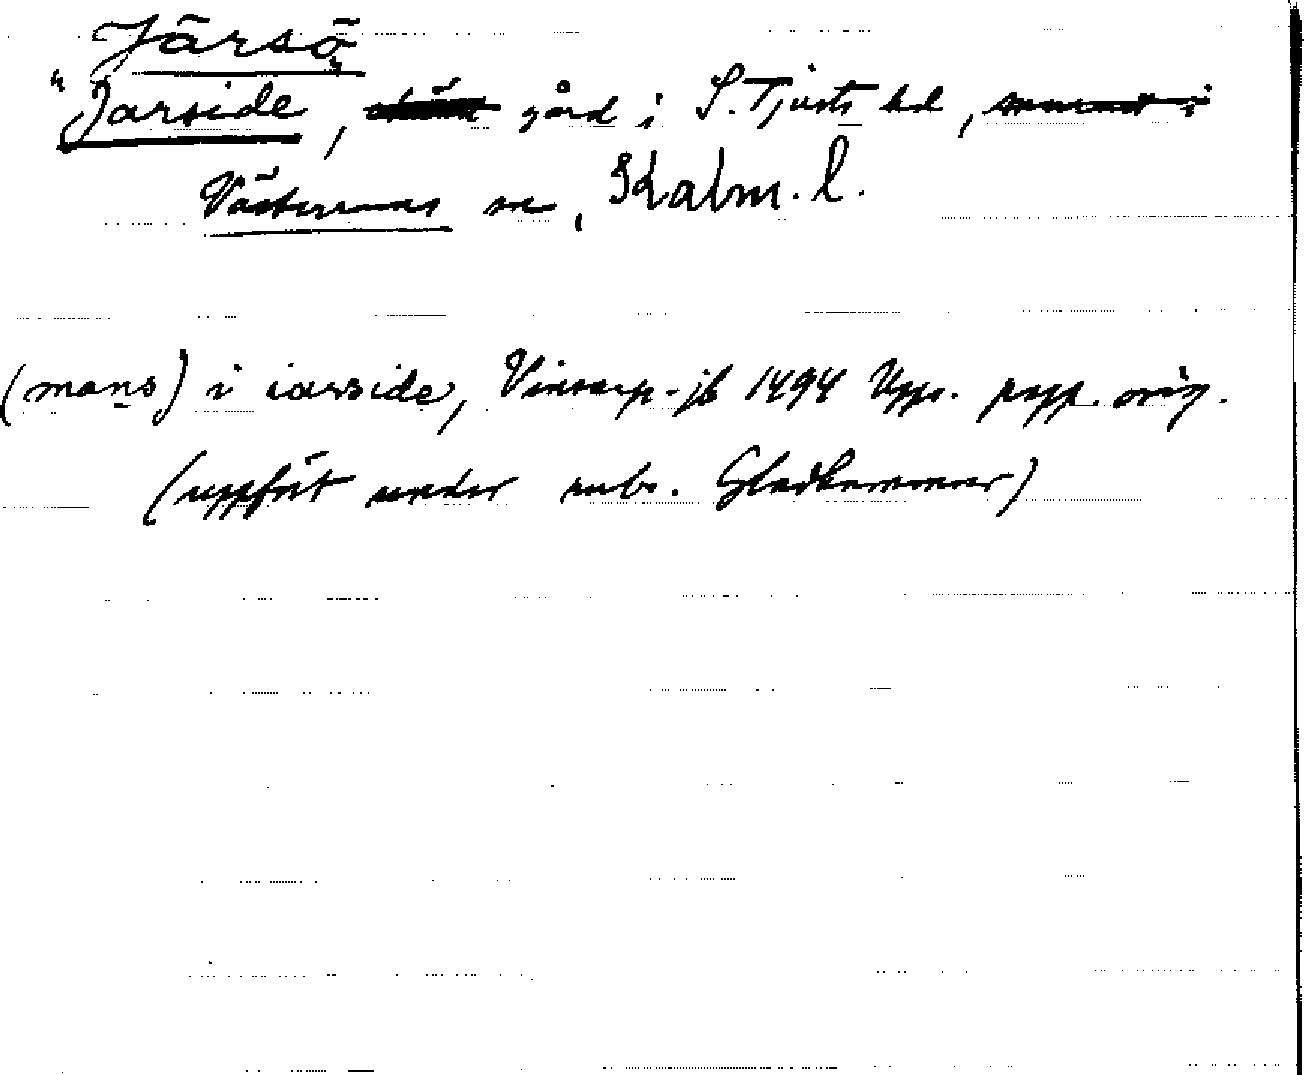 Järsö
"Jarside, gård i S. Tjusts hd,
Västerums sn, Kalm. l.
(mans) i iarside, Vinsarp-jb 1494 Upps. papp. orig.
(uppfört under rubr. Gladhammar)